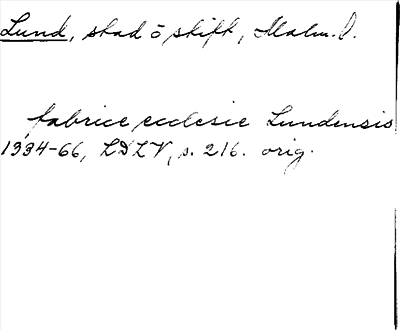 Lund, stad o skift, Malm. l.
fabrice ecclesie Lundensis
1334-66, LDLV, s. 216. orig.